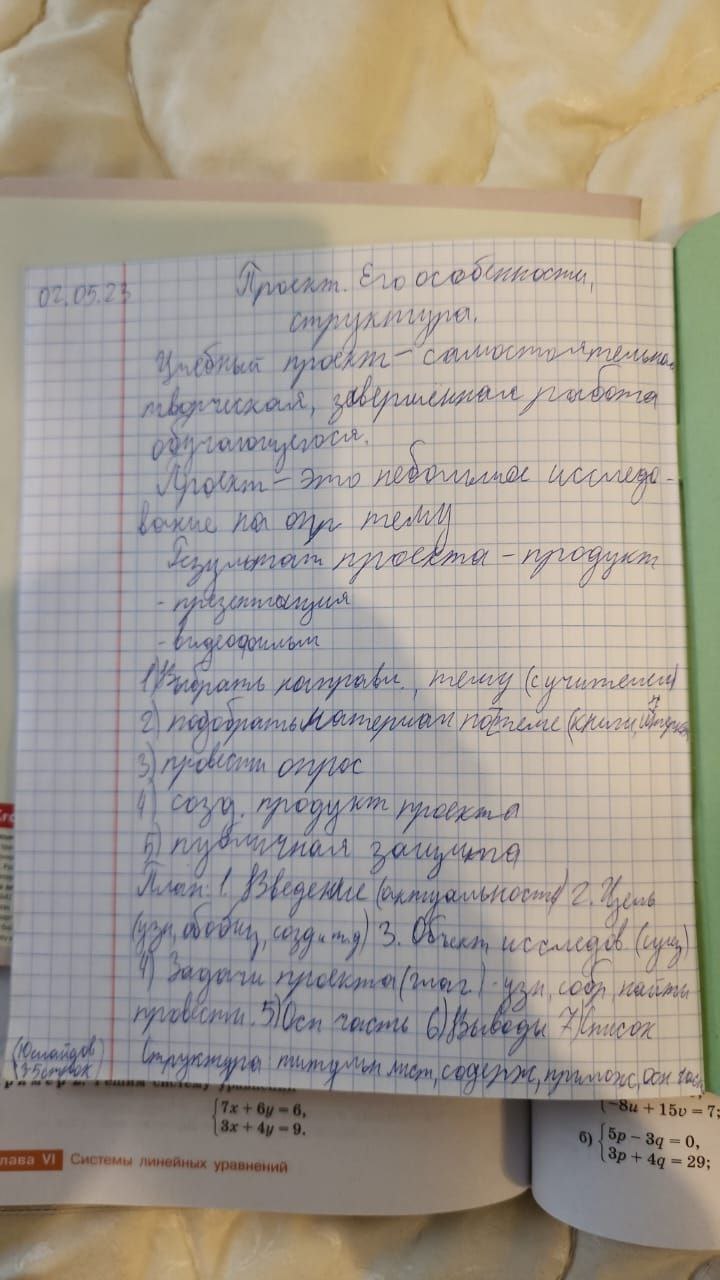 02.05.23
Проект. Его особенности,
структура.
Учебный проект – самостоятельная
творческая, завершенная работа
обучающегося.
Проект – это небольшое исследо-
вание на опр тему
Результат проекта – продукт
- презентация
- видеофильм
1) Выбрать направл., тему (с учителем)
2) подобрать материал по теме (книги,
3) провести опрос
4) созд. продукт проекта
5) публичная защита
План: 1. Введение (актуальность) 2. Цель
(узн, обобщ, созд и т.д) 3. Объект исследов. (сущ)
4) Задачи проекта (глаг) - узн, собр, найти
провести. 5) Осн часть 6) Выводы 7) Список
(10 слайдов
3-5 строк)
Структура: титульн лист, содерж, прилож, осн часть
решим систему уравнений
7x + 6y = 6,
3x + 4y = 9.
лава VI Системы линейных уравнений
–8u + 15v = 7;
б) 5p – 3q = 0,
3p + 4q = 29;